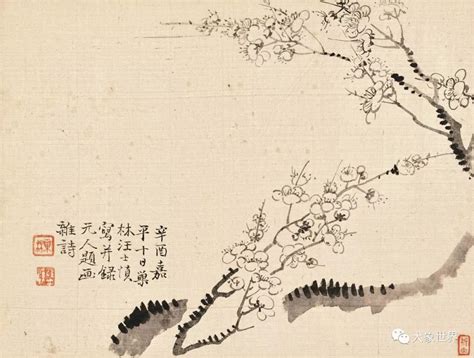 辛酉嘉
平十日巢
林汪士慎
寫并錄
元人題画
雜詩
大象世界